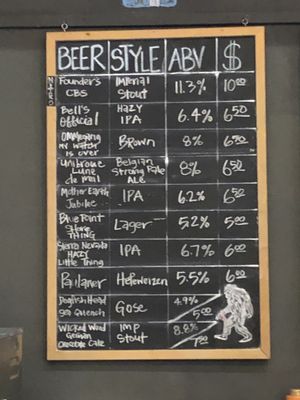 BEER STYLE ABV $
Founder's Imperial 11.3% 10.00
CBS Stout
Bell's HAZY 6.4% 6.50
Official IPA
Ommegang Brown 8%
MY WATCH
IS OVER
Unibroue Belgian 8% 6.50
Lune Strong Pale
de Miel ALE
Mother Earth IPA 6.2% 6.50
Jubilee
Blue Point Lager 5.2% 5.00
Shore
THING
Sierra Nevada IPA 6.7% 6.00
HAZY
Little Thing
Paulaner Hefeweizen 5.5% 6.00
Dogfish Head Gose 4.9%
Sea Quench 5.00
Wicked Weed Imp 8.8%
German Stout 7.00
Chocolate Cake